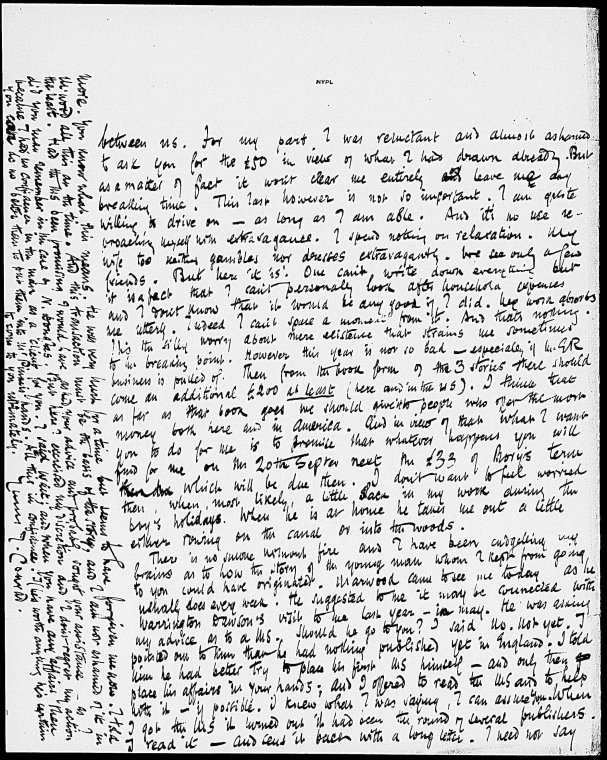 NYPL
between us. For my part I was reluctant and almost ashamed
to ask you for the £50 in view of what I had drawn already. But
as a matter of fact it won't clear me entirely and leave me any
breaking time. This last however is not so important. I am quite
willing to drive on — as long as I am able. And it's no use re-
proaching myself with extravagance. I spend nothing on relaxation. My
wife too neither gambles nor dresses extravagantly. We see only a few
friends. But here it is. One can't write down everything but
it is a fact that I can't personally look after household expenses
and I don't know that it would be any good if I did. My work absorbs
me utterly. Indeed I can't spare a moment from it. And that's nothing.
It's the silly worry about mere existence that strains me sometimes
to the breaking point. However this year is not so bad — especially if the
business is pulled off. Then from the book form of the 3 stories there should
come an additional £200 at least (here and in the US). I think that
as far as that book goes we should give it to people who offer the most
money both here and in America. And in view of that what I want
you to do for me is to promise that whatever happens you will
find for me on the 20th Septer next the £33 of Borys term
which will be due then. I don't want to feel worried
then, when, most likely, a little slack in my work during the
boy's holidays. When he is at home he takes me out a little
either rowing on the canal or into the woods.
There is no smoke without fire and I have been cudgelling my
brains as to how the story of the young man whom I kept from going
to you could have originated. Marwood came to see me today as he
usually does every week. He suggested to me it may be connected with
Warrington Dawson's visit to me last year — it may. He was asking
my advice as to a MS. Should he go to you? I said no. Not yet. I
pointed out to him that he had nothing published yet in England. I told
him he had better try to place his first MS himself — and only then
place his affairs in your hands; and I offered to read the MS and to help
with it — if possible. I knew what I was saying, I can assure you. When
I got the MS it turned out it had been the round of several publishers.
I read it — and sent it back with a long letter. I need not say
more. You know what this means. He was very hurt for a time but seems to have forgiven me now. I had
all this at the time. And this transaction must be the basis of the story, and I am not ashamed of it in
the least. Had the MS been promising I would have asked your advice and probably sought your assistance — as I
did you may remember in the case of N. Douglas. But here I exercised my discretion and I don't regret my action
because I had no confidence in the man as a client for you. I said: wait; and when you have any affairs then
you can do no better than to put them into Mr Pinker's hands. All this in confidence. If he's worth anything he's certain
to come to you ultimately. Yours J. Conrad.